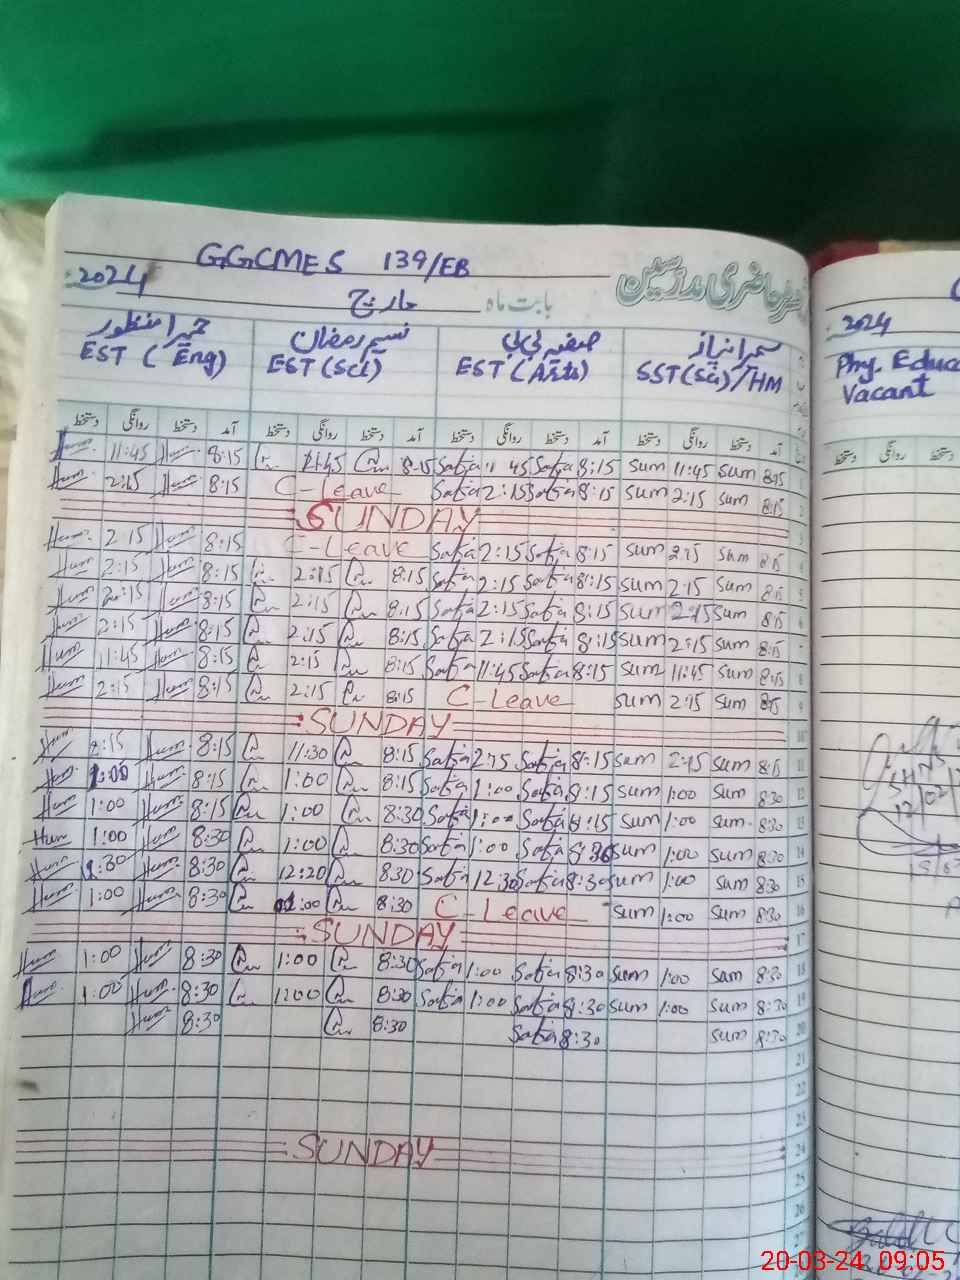 G.G.CMES 139/EB
حاضری مدرسین
2024 مارچ بابت ماہ
2024
نسیم رمضان صفیہ بی بی سمرا نیاز
EST ( Eng) EST (Sci) EST (Arts) SST(Sci)/HM
Phy. Educa
Vacant
دستخط روانگی دستخط آمد دستخط روانگی دستخط آمد دستخط روانگی دستخط آمد دستخط روانگی دستخط آمد
دستخط روانگی دستخط
Hum 11:45 Hum 8:15 11:45 8:15 Safia 11:45 Safia 8:15 Sum 11:45 Sum 8:15 1
Hum 2:15 Hum 8:15 C-Leave Safia 2:15 Safia 8:15 Sum 2:15 Sum 8:15 2
SUNDAY 3
Hum 2:15 Hum 8:15 C-Leave Safia 2:15 Safia 8:15 Sum 2:15 Sum 8:15 4
Hum 2:15 Hum 8:15 2:15 8:15 Safia 2:15 Safia 8:15 Sum 2:15 Sum 8:15 5
Hum 2:15 Hum 8:15 2:15 8:15 Safia 2:15 Safia 8:15 Sum 2:15 Sum 8:15 6
Hum 2:15 Hum 8:15 2:15 8:15 Safia 2:15 Safia 8:15 Sum 2:15 Sum 8:15 7
Hum 11:45 Hum 8:15 2:15 8:15 Safia 11:45 Safia 8:15 Sum 11:45 Sum 8:15 8
Hum 2:15 Hum 8:15 2:15 8:15 C-Leave Sum 2:15 Sum 8:15 9
SUNDAY 10
Hum 2:15 Hum 8:15 11:30 8:15 Safia 2:15 Safia 8:15 Sum 2:15 Sum 8:15 11
Hum 1:00 Hum 8:15 1:00 8:15 Safia 1:00 Safia 8:15 Sum 1:00 Sum 8:30 12
Hum 1:00 Hum 8:15 1:00 8:30 Safia 1:00 Safia 8:15 Sum 1:00 Sum 8:30 13
Hum 1:00 Hum 8:30 1:00 8:30 Safia 1:00 Safia 8:30 Sum 1:00 Sum 8:30 14
Hum Hum 8:30 12:20 8:30 Safia 12:30 Safia 8:30 Sum 1:00 Sum 8:30 15
Hum 1:00 Hum 8:30 1:00 8:30 C-Leave Sum 1:00 Sum 8:30 16
SUNDAY 17
Hum 1:00 Hum 8:30 1:00 8:30 Safia 1:00 Safia 8:30 Sum 1:00 Sum 8:30 18
Hum 1:00 Hum 8:30 1:00 8:30 Safia 1:00 Safia 8:30 Sum 1:00 Sum 8:30 19
Hum 8:30 8:30 Safia 8:30 Sum 8:30 20
21
22
23
SUNDAY 24
25
26
27
20-03-24 09:05